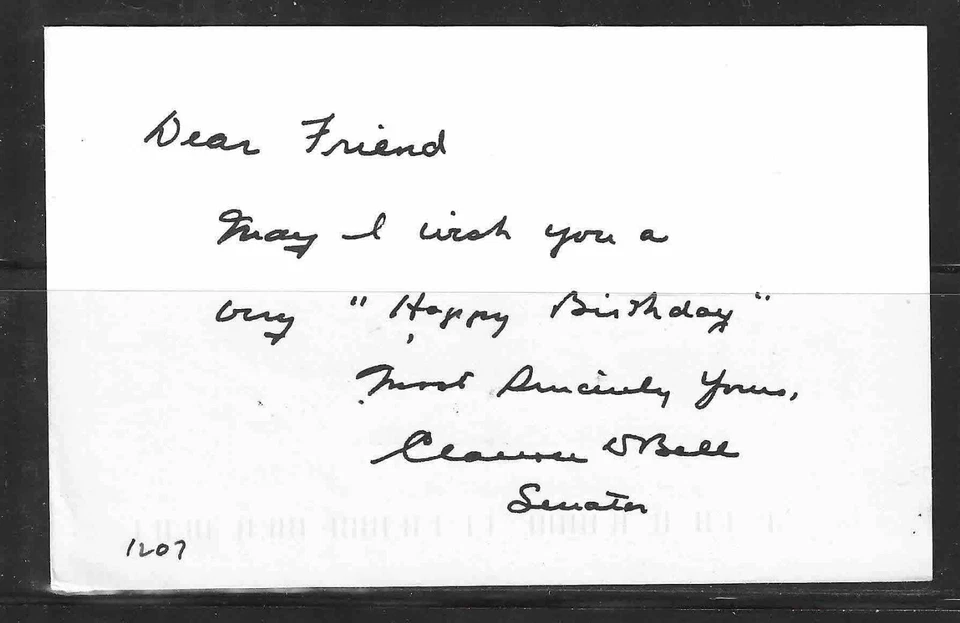 Dear Friend
May I wish you a
very "Happy Birthday"
Most Sincerely Yours,
Clarence D Bell
Senator
1207